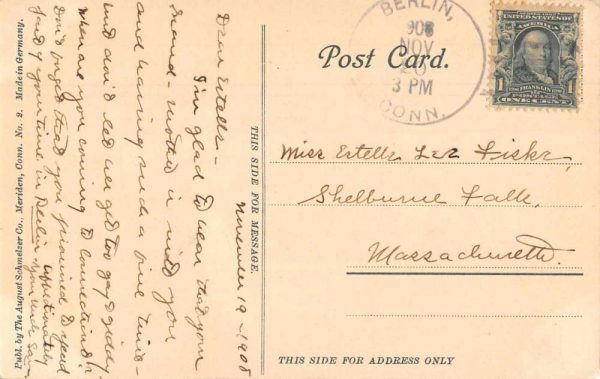 Publ. by The August Schmelzer Co., Meriden, Conn. No. 2. Made in Germany.
November 19 - 1908
Dear Estelle -
I'm glad to hear that your
friend - mother is with you
and having such a fine time -
and don't let her get too gay & giddy.
When are you coming to Connecticut?
Don't forget that you promised to spend
part of your time in Berlin.
Affectionately
Your Uncle
THIS SIDE FOR MESSAGE.
BERLIN,
908
NOV
20
3 PM
CONN.
UNITED STATES OF AMERICA
FRANKLIN
POSTAGE
1 1
ONE CENT
Post Card.
Miss Estelle Lee Fiske,
Shelburne Falls,
Massachusetts.
THIS SIDE FOR ADDRESS ONLY